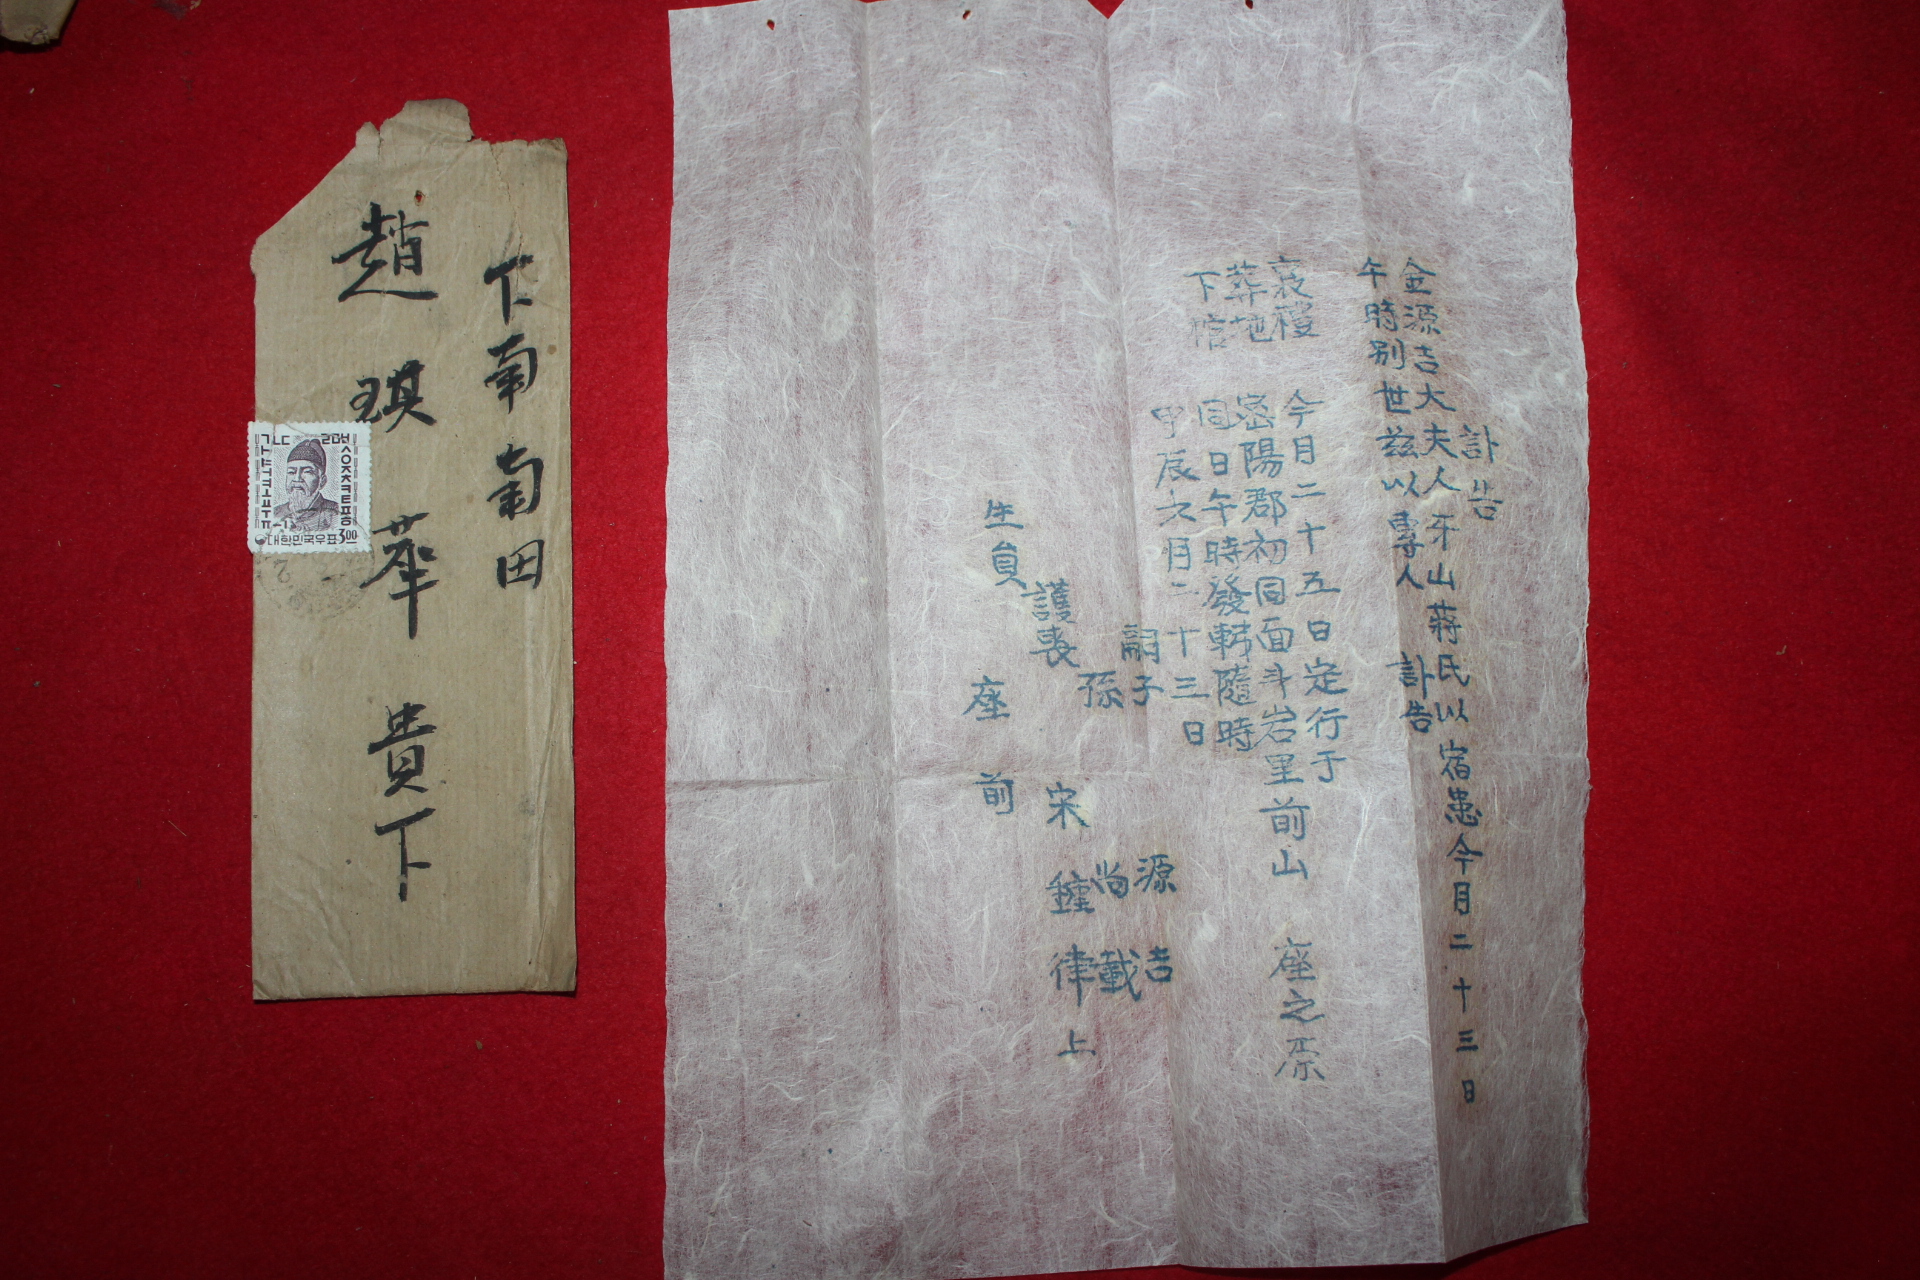 下南南田
趙琪華貴下
대한민국우표 3.00
訃告
金源吉大夫人牙山蔣氏以宿患今月二十三日
午時別世玆以專人 訃告
哀禮 今月二十五日定行于
葬地 密陽郡初同面斗岩里前山 座之原
下棺 同日午時發靷隨時
甲辰六月二十三日
嗣子 源吉
孫 尚載
護喪 宋鐘律 上
生員 座前